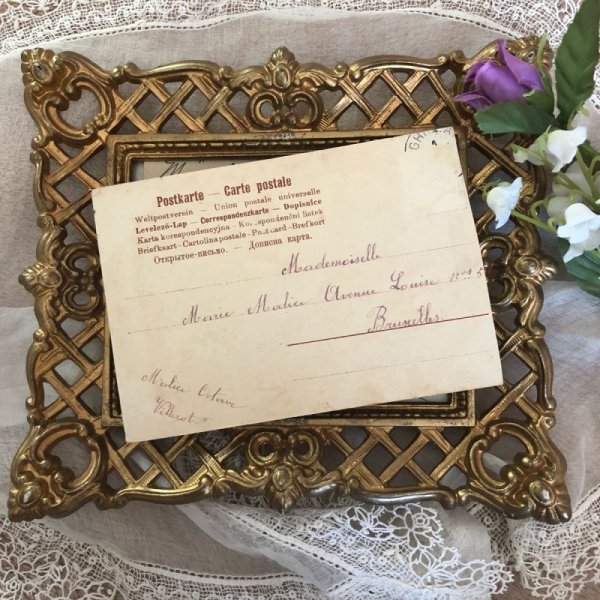 Postkarte — Carte postale
Weltpostverein — Union postale universelle
Levelező-Lap — Correspondenzkarte — Dopisnice
Karta korespondencyjna - Korespondenční lístek
Briefkaart - Cartolina postale - Post card - Brefkort
Открытое-письмо. — Дописна карта.
Mademoiselle
Marie Malice Avenue Louise
Bruxelles
Malice